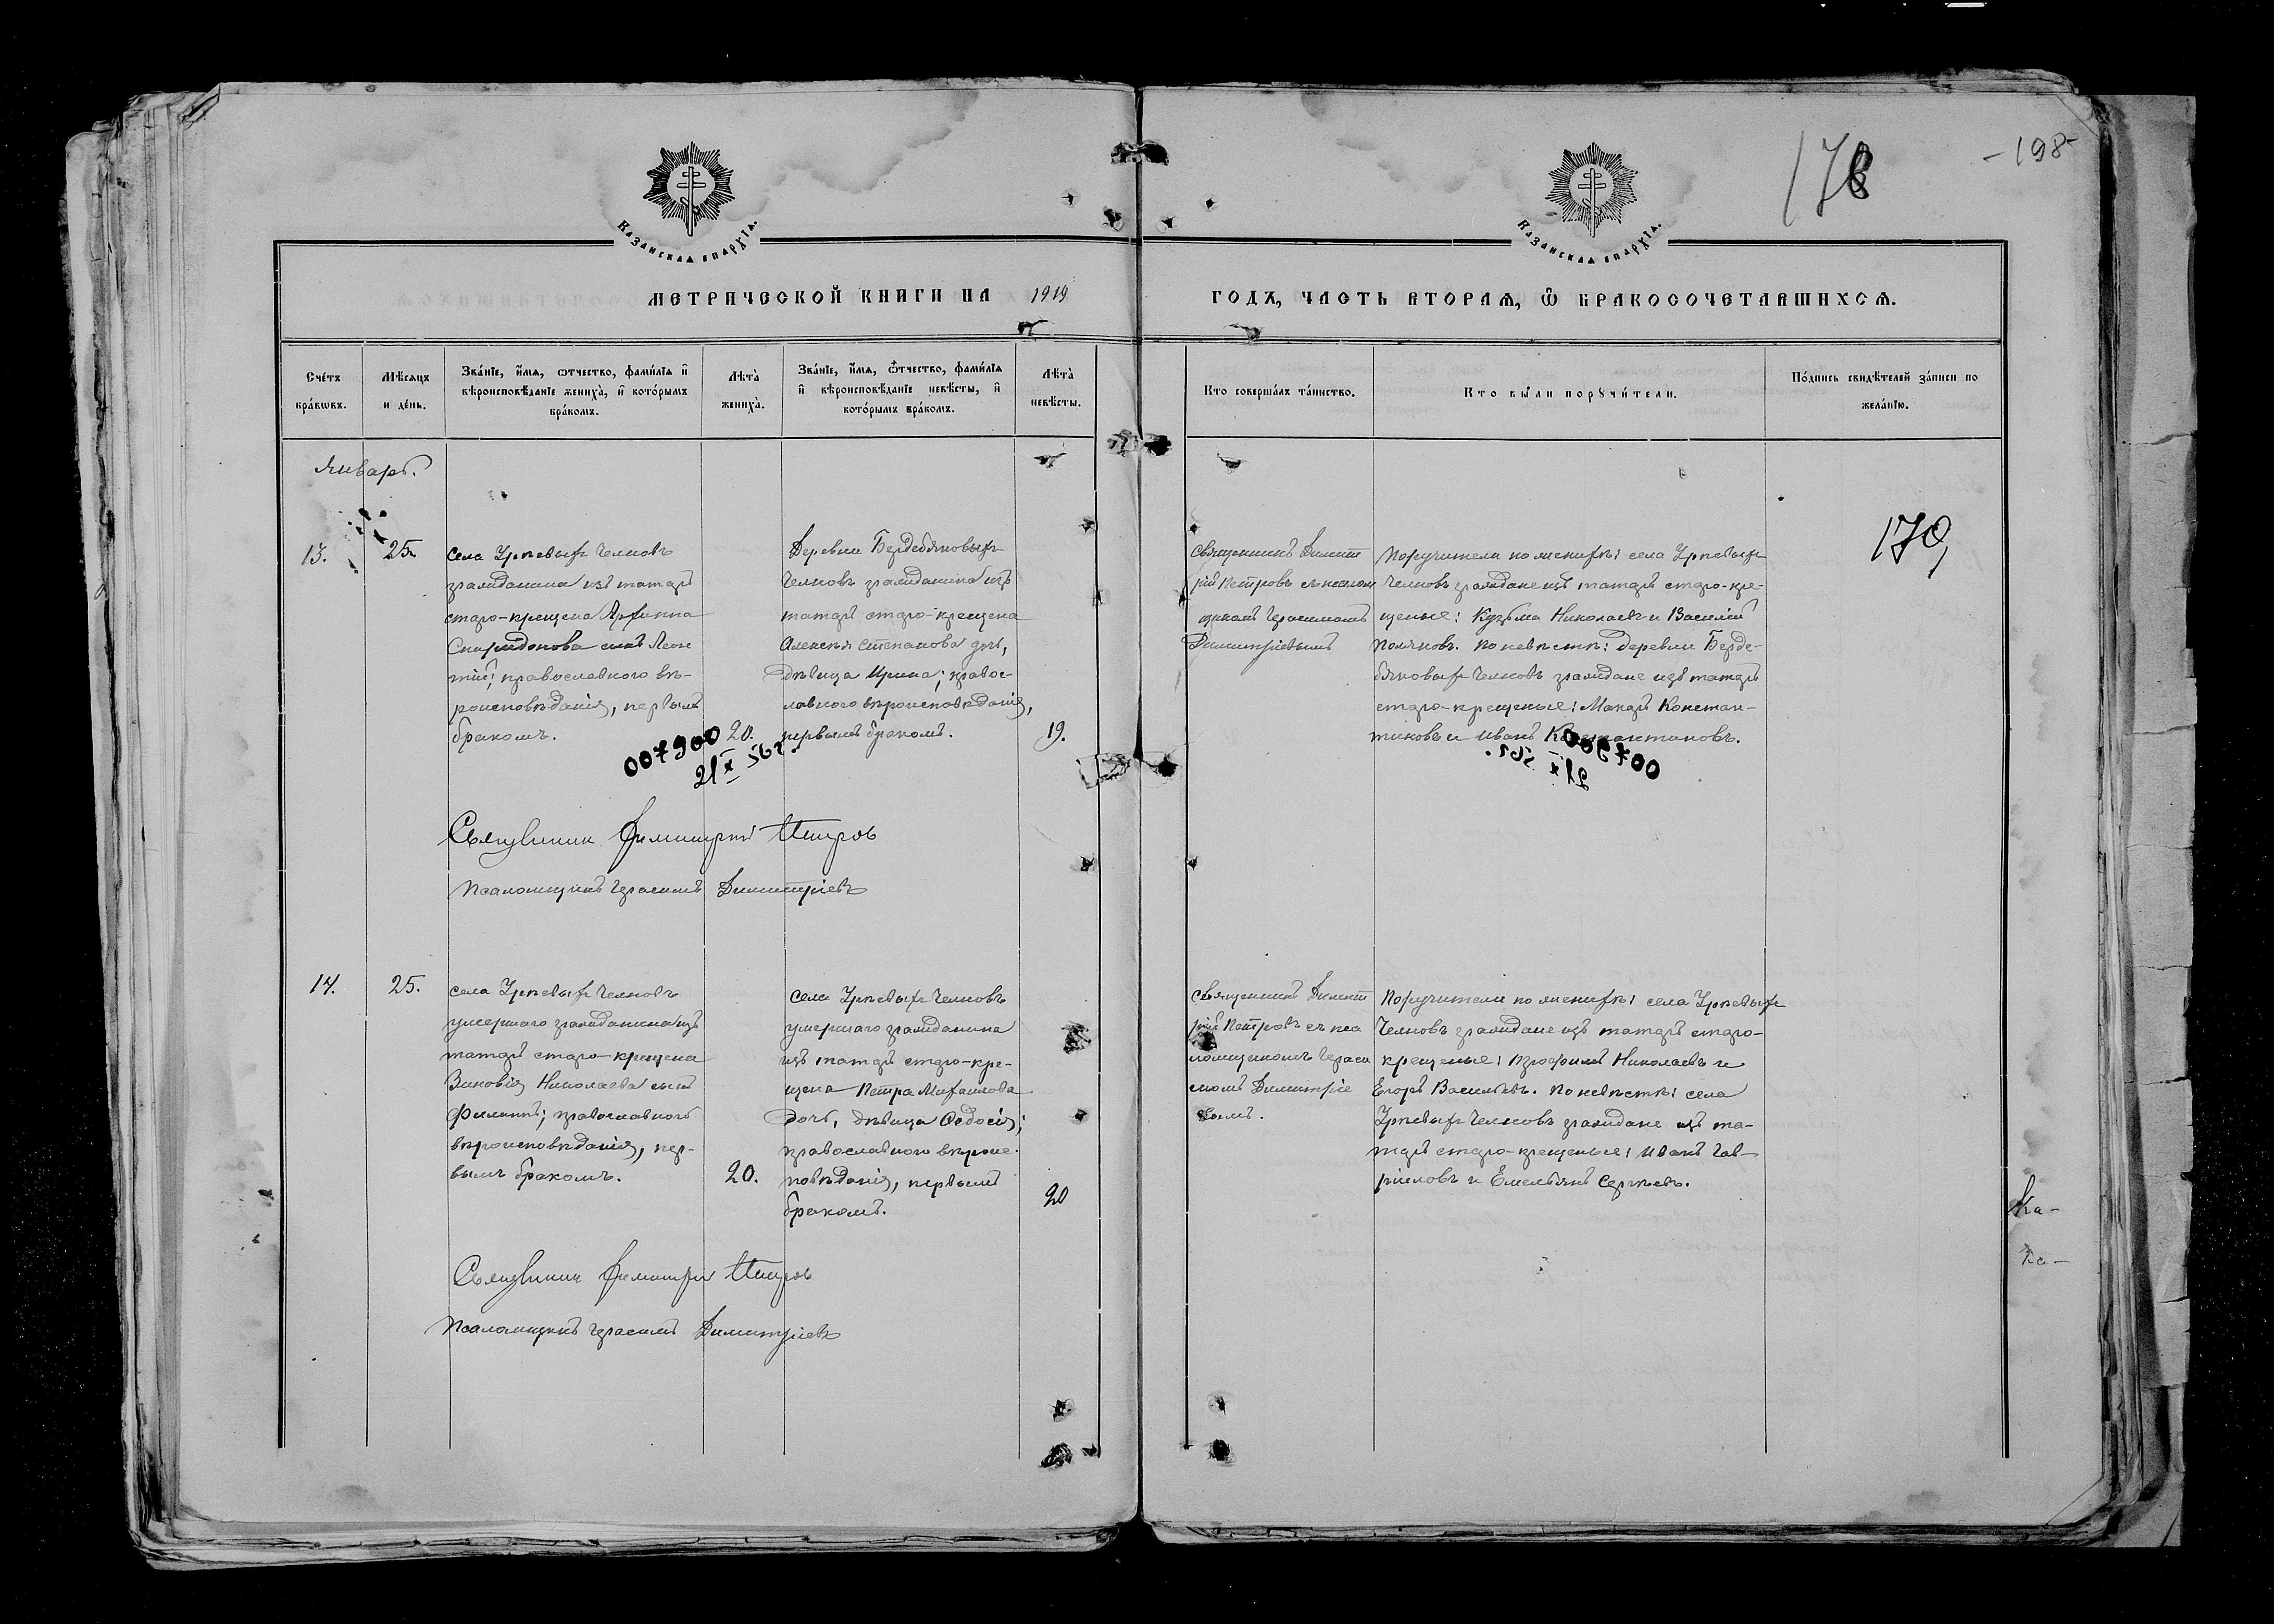 178
-198-
Казанская епархїа.
Казанская епархїа.
Метрической книги на 1919
годъ, часть вторая, ѡ бракосочетавшихся.
Счетъ браковъ.
Мѣсяцъ и день.
Званїе, имя, отчество, фамилїя и вѣроисповѣданїе жениха, и которымъ бракомъ.
Лѣта жениха.
Званїе, имя, отчество, фамилїя и вѣроисповѣданїе невѣсты, и которымъ бракомъ.
Лѣта невѣсты.
Кто совершалъ таинство.
Кто были поручители.
Подпись свидѣтелей записи по желанїю.
Январь.
13.
25.
села Урѣевыхъ Челновъ
гражданина изъ татаръ
старо-крещена Архиппа
Спиридонова сынъ Леон
тій; православнаго вѣ-
роисповѣданія, первымъ
бракомъ.
20.
Деревни Бердебяковыхъ
Челновъ гражданина изъ
татаръ старо-крещена
Алексѣя Степанова дочь,
дѣвица Ирина; правос-
лавнаго вѣроисповѣданія,
первымъ бракомъ.
19.
священникъ Димит
рій Петровъ съ псалом
щикомъ Герасимомъ
Димитріевымъ
Поручители по женихѣ: села Урѣевыхъ
Челновъ граждане изъ татаръ старо-кре-
щеные: Кузьма Николаевъ и Василій
Поляковъ. По невѣстѣ: деревни Берде-
бяковыхъ Челновъ граждане изъ татаръ
старо-крещеные: Макаръ Констан-
тиновъ и Иванъ Константиновъ.
170,
007900
21 X 56г.
007900
21 X 56г.
Священник Димитрий Петров
Псаломщикъ Герасимъ Димитріевъ
14.
25.
села Урѣевыхъ Челновъ
умершаго гражданина изъ
татаръ старо-крещена
Зиновія Николаева сынъ
Филиппъ; православнаго
вѣроисповѣданія, пер-
вымъ бракомъ.
20.
села Урѣевыхъ Челновъ
умершаго гражданина
изъ татаръ старо-кре-
щена Петра Михаилова
дочь, дѣвица Ѳедосія;
православнаго вѣроис-
повѣданія, первымъ
бракомъ.
20
священникъ Димит
рій Петровъ съ пса
ломщикомъ Гераси
момъ Димитріе
вымъ.
Поручители по женихѣ: села Урѣевыхъ
Челновъ граждане изъ татаръ старо-
крещеные: Трофимъ Николаевъ и
Егоръ Васильевъ. По невѣстѣ: села
Урѣевыхъ Челновъ граждане изъ та-
таръ старо-крещеные: Иванъ Гав-
риловъ и Емельянъ Сергѣевъ.
Ка-
ка-
Священник Димитрий Петров
Псаломщикъ Герасимъ Димитріевъ